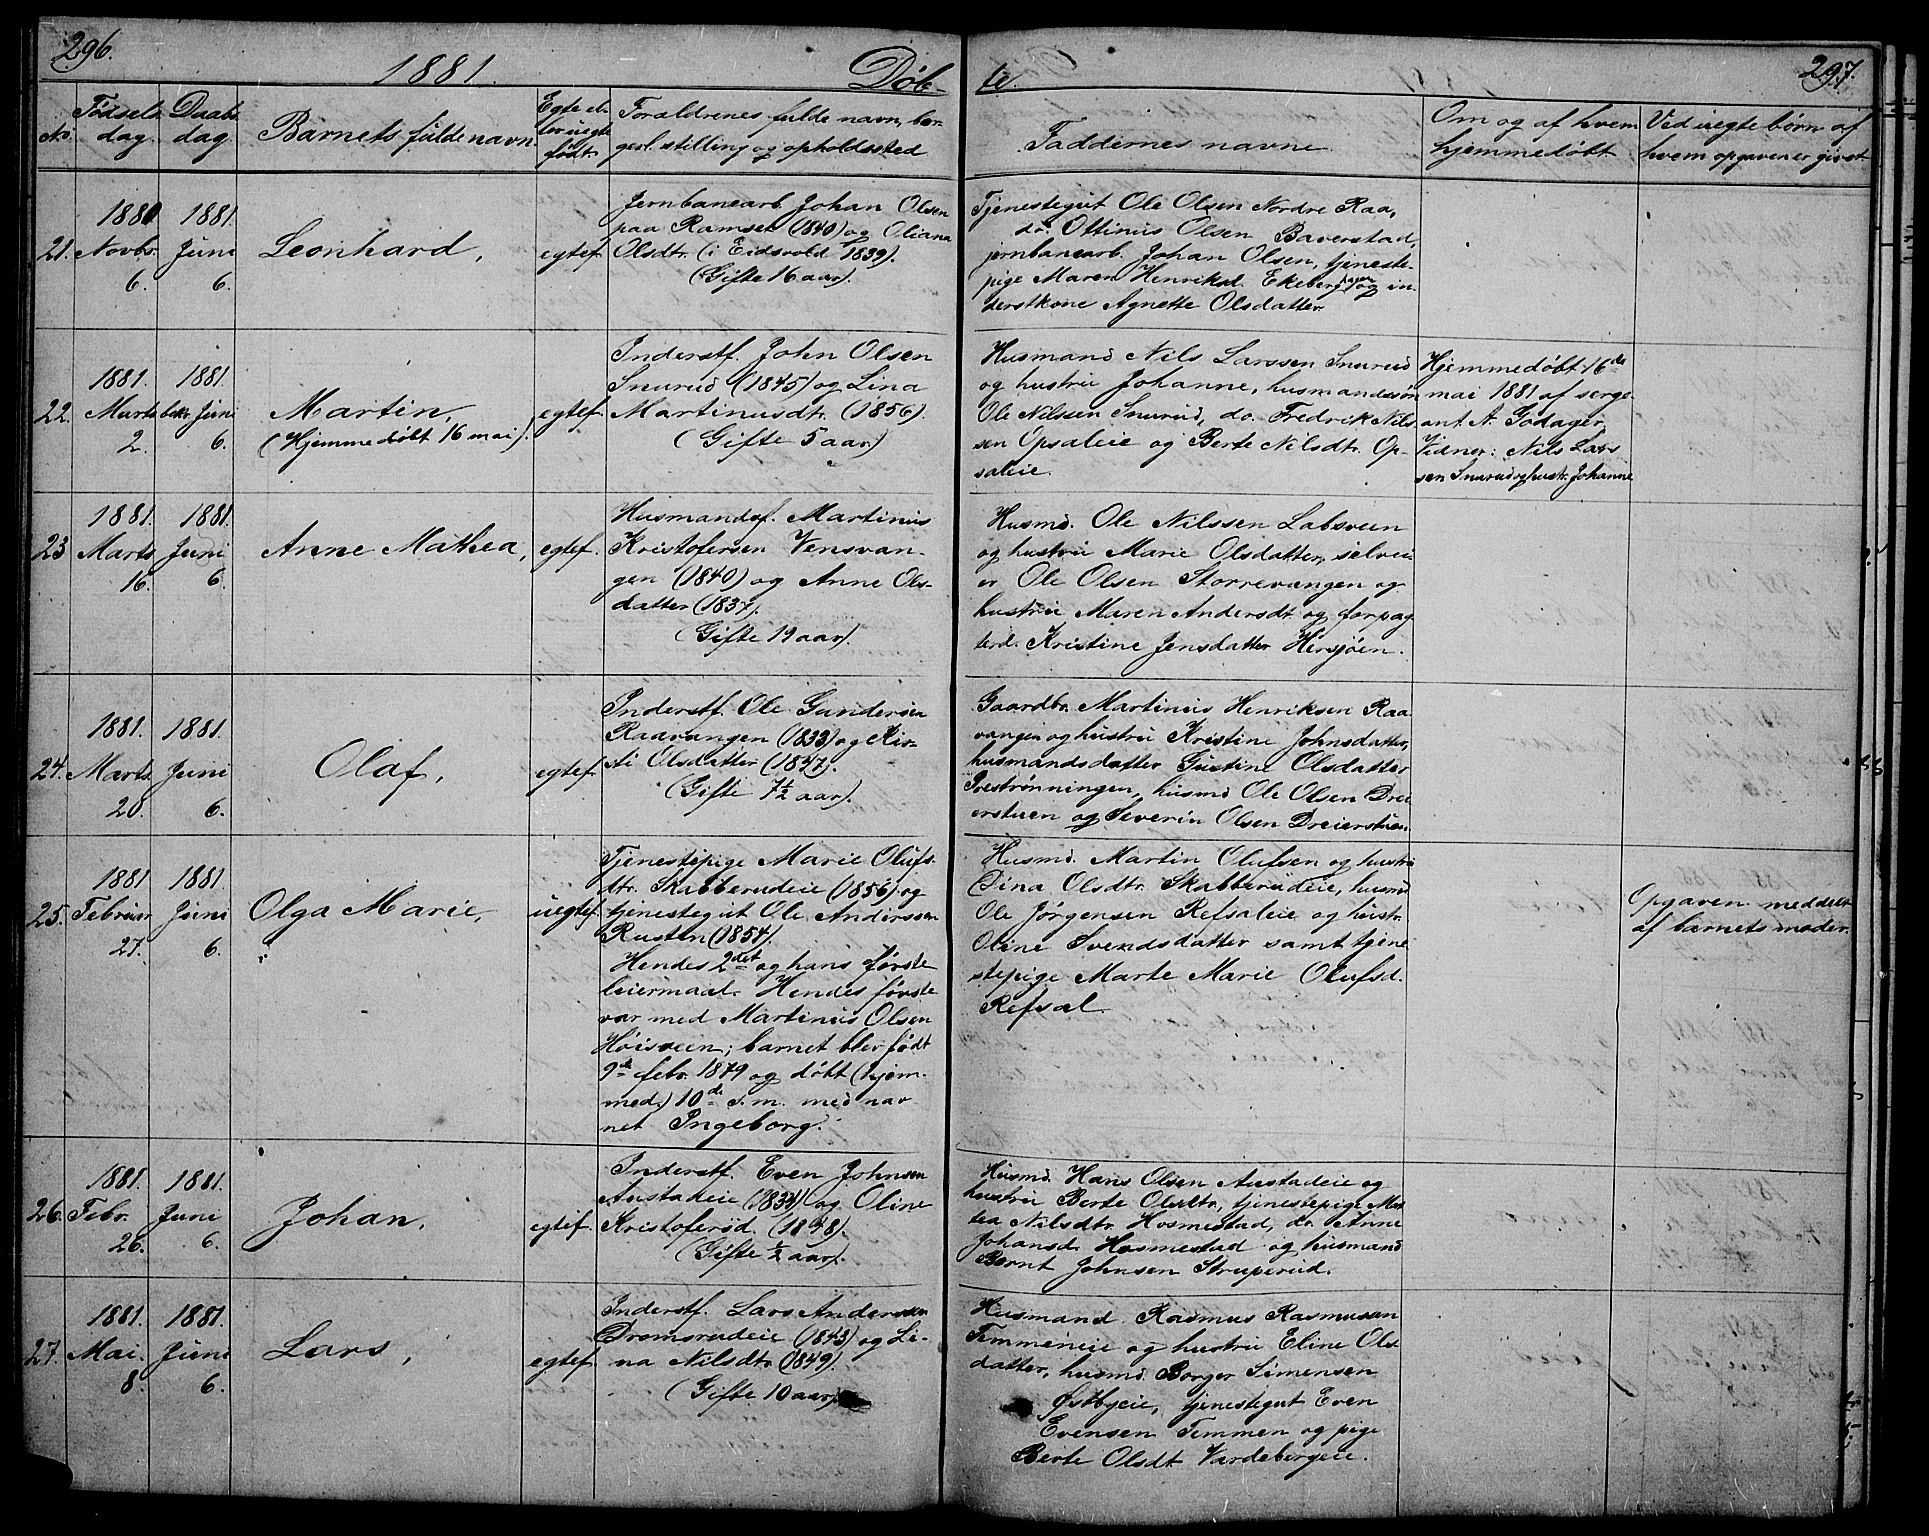 296.
1881.
Døb-
No.
Fødsels
dag.
Daabs
dag
Barnets fulde navn.
Egte el-
ler uegte
født.
Forældrenes fulde navn, bor-
gerl. stilling og opholdssted
21.
1880
Novbr.
6.
1881.
Juni
6.
Leonhard,
egtef.
Jernbanearb. Johan Olsen
paa Ramsen (1840) og Oliana
Olsdtr. (i Eidsvold 1839).
(Gifte 16 aar).
22.
1881.
Marts
2.
1881.
bekr. Juni
6.
Martin,
(Hjemmedøbt 16 mai).
egtef.
Inderstf. John Olsen
Snurud (1845) og Lina
Martinusdtr. (1856).
(Gifte 5 aar.)
23
1881.
Marts
16.
1881.
Juni
6.
Anne Mathea,
egtef.
Husmandsf. Martinus
Kristofersen Vensvan-
gen (1840) og Anne Ols-
datter (1837).
(Gifte 19 aar).
24.
1881.
Marts
20.
1881.
Juni
6.
Olaf,
egtef.
Inderstf. Ole Gundersen
Raavangen (1833) og Kir-
sti Olsdatter (1847).
(Gifte 7½ aar).
25.
1881
Februar
27.
1881.
Juni
6.
Olga Marie,
uegtef.
Tjenestepige Marie Olufs-
dtr. Skabberudeie (1856) og
tjenestegut Ole Anderssen
Rusten (1854).
Hendes 2det og hans første
leiermaal. Hendes første
var med Martinus Olsen
Høisveen; barnet blev født
9de febr. 1879 og døbt (hjem-
med.) 10de s. m. med nav-
net Ingeborg.
26.
1881.
Febr.
26.
1881.
Juni
6.
Johan,
egtef.
Inderstf. Even Johnsen
Austadeie (1834) og Oline
Kristofersd. (1848).
(Gifte ½ aar).
27.
1881.
Mai.
8.
1881.
Juni
6.
Lars,
egtef.
Inderstf. Lars Anderssen
Dromsrudeie (1843) og Li-
na Nilsdtr. (1849).
(Gifte 10 aar).
te.
297.
Faddernes navne
Om og af hvem
hjemmedøbt
Ved uegte børn af
hvem opgaven er givet
Tjenestegut Ole Olsen Nordre Raa,
do. Ottinus Olsen Baverstad,
jernbanearb. Johan Olsen, tjeneste-
pige Maren Henriksd. Ekeberghagen og in-
derstkone Agnette Olsdatter.
Husmand Nils Larssen Snurud
og hustru Johanne, husmandssøn
Ole Nilssen Snurud, do. Fredrik Nils-
sen Opsaleie og Berte Nilsdtr. Op-
saleie.
Hjemmedøbt 16de
mai 1881 af serge-
ant A. Godager.
Vidner: Nils Lars
sen Snurud og hustr. Johanne
Husmd. Ole Nilssen Labsveen
og hustru Marie Olsdatter, selvei-
er Ole Olsen Storrevangen og
hustru Maren Andersdt. og forpag-
terd. Kristine Jensdatter Hersjøen.
Gaardbr. Martinus Henriksen Raa-
vangen og hustru Kristine Johnsdatter,
husmandsdatter Gustine Olsdatter
Prestrønningen, husmd. Ole Olsen Drei-
erstuen og Severin Olsen Dreierstuen.
Husmd. Martin Olufsen og hustru
Dina Olsdtr. Skabberudeie, husmd.
Ole Jørgensen Refsaleie og hustr.
Oline Svendsdatter samt tjene-
stepige Marte Marie Olufsd.
Refsal.
Opgaven meddelt
af barnets moder.
Husmd. Hans Olsen Austadeie og
hustru Berte Olsdtr., tjenestepige Mar-
tea Nilsdtr. Hosmestad, do. Anne
Johansd. Hosmestad og husmand
Bernt Johnsen Struperud.
Husmand Rasmus Rasmusen
Timmeneie og hustru Eline Ols-
datter, husmd. Borger Simensen
Østbyeie, tjenestegut Even
Evensen Timmen og pige
Berte Olsdt. Vardebergeie.